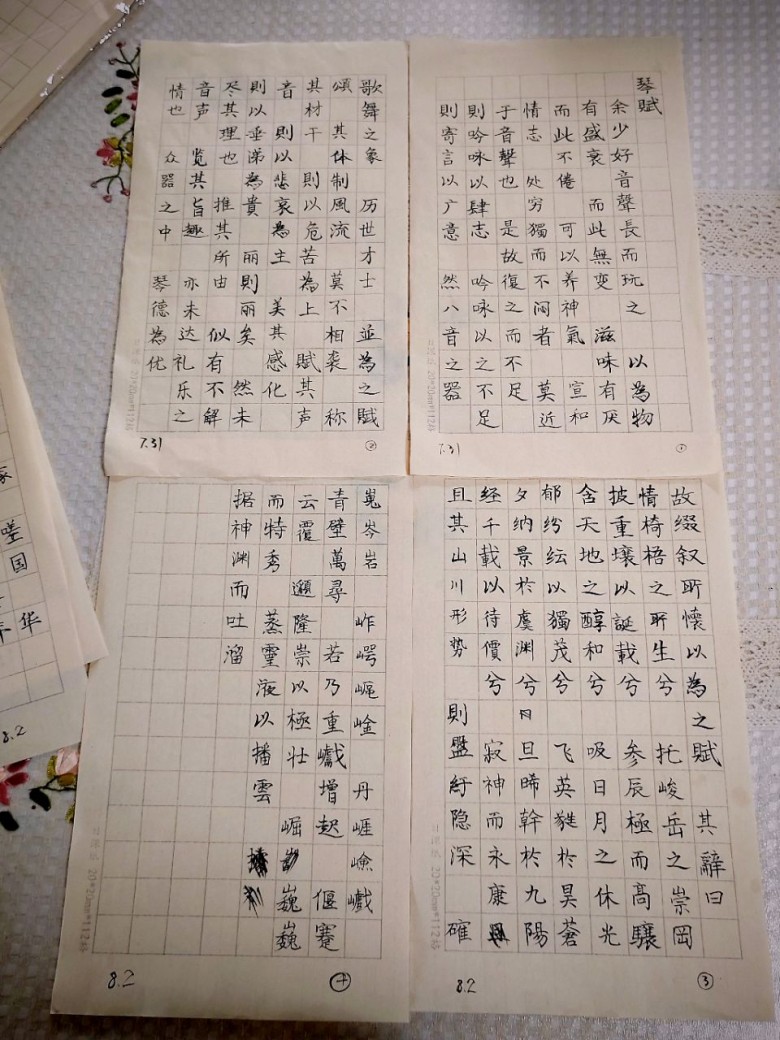 琴賦
余少好音聲長而玩之 以為物
有盛衰 而此無变 滋味有厌
而此不倦 可以养神氣 宣和
情志 处穷獨而不闷者 莫近
于音聲也 是故復之而不足
則吟咏以肆志 吟咏以之不足
則寄言以广意 然八音之器
7.31 ①
歌舞之象 历世才士 並為之賦
頌 其体制風流 莫不相袭 称
其材干 則以危苦為上 賦其声
音 則以悲哀為主 美其感化
則以垂涕為貴 丽則丽矣 然未
尽其理也 推其所由 似有不解
音声 览其旨趣 亦未达礼乐之
情也 众器之中 琴德為优
7.31 ②
20*20mm*112格
故缀叙所懷以為之賦 其辭曰
情椅梧之所生兮 托峻岳之崇岡
披重壤以誕載兮 参辰極而高驤
含天地之醇和兮 吸日月之休光
郁纷纭以獨茂兮 飞英蕤於昊蒼
夕纳景於虞渊兮 旦晞幹於九陽
经千載以待價兮 寂神而永康
且其山川形势 則盤紆隐深 確
8.2 ③
20*20mm*112格
嵬岑岩 岞崿嶇崯 丹崕嶮巇
青壁萬尋 若乃重巘增起 偃蹇
云覆 邈隆崇以極壮 崛巍巍
而特秀 蒸靈液以播雲
据神渊而吐溜
8.2 ④
20*20mm*112格
华
嗟国
8.2